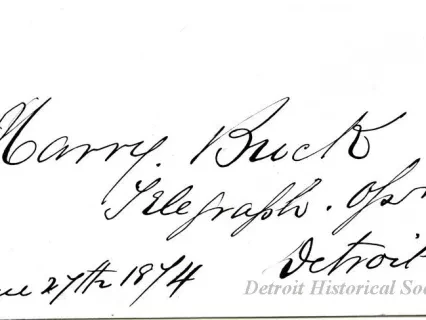 Harry. Buck
Telegraph. Opr
Detroit
ne 27th 1874
Detroit Historical Soc